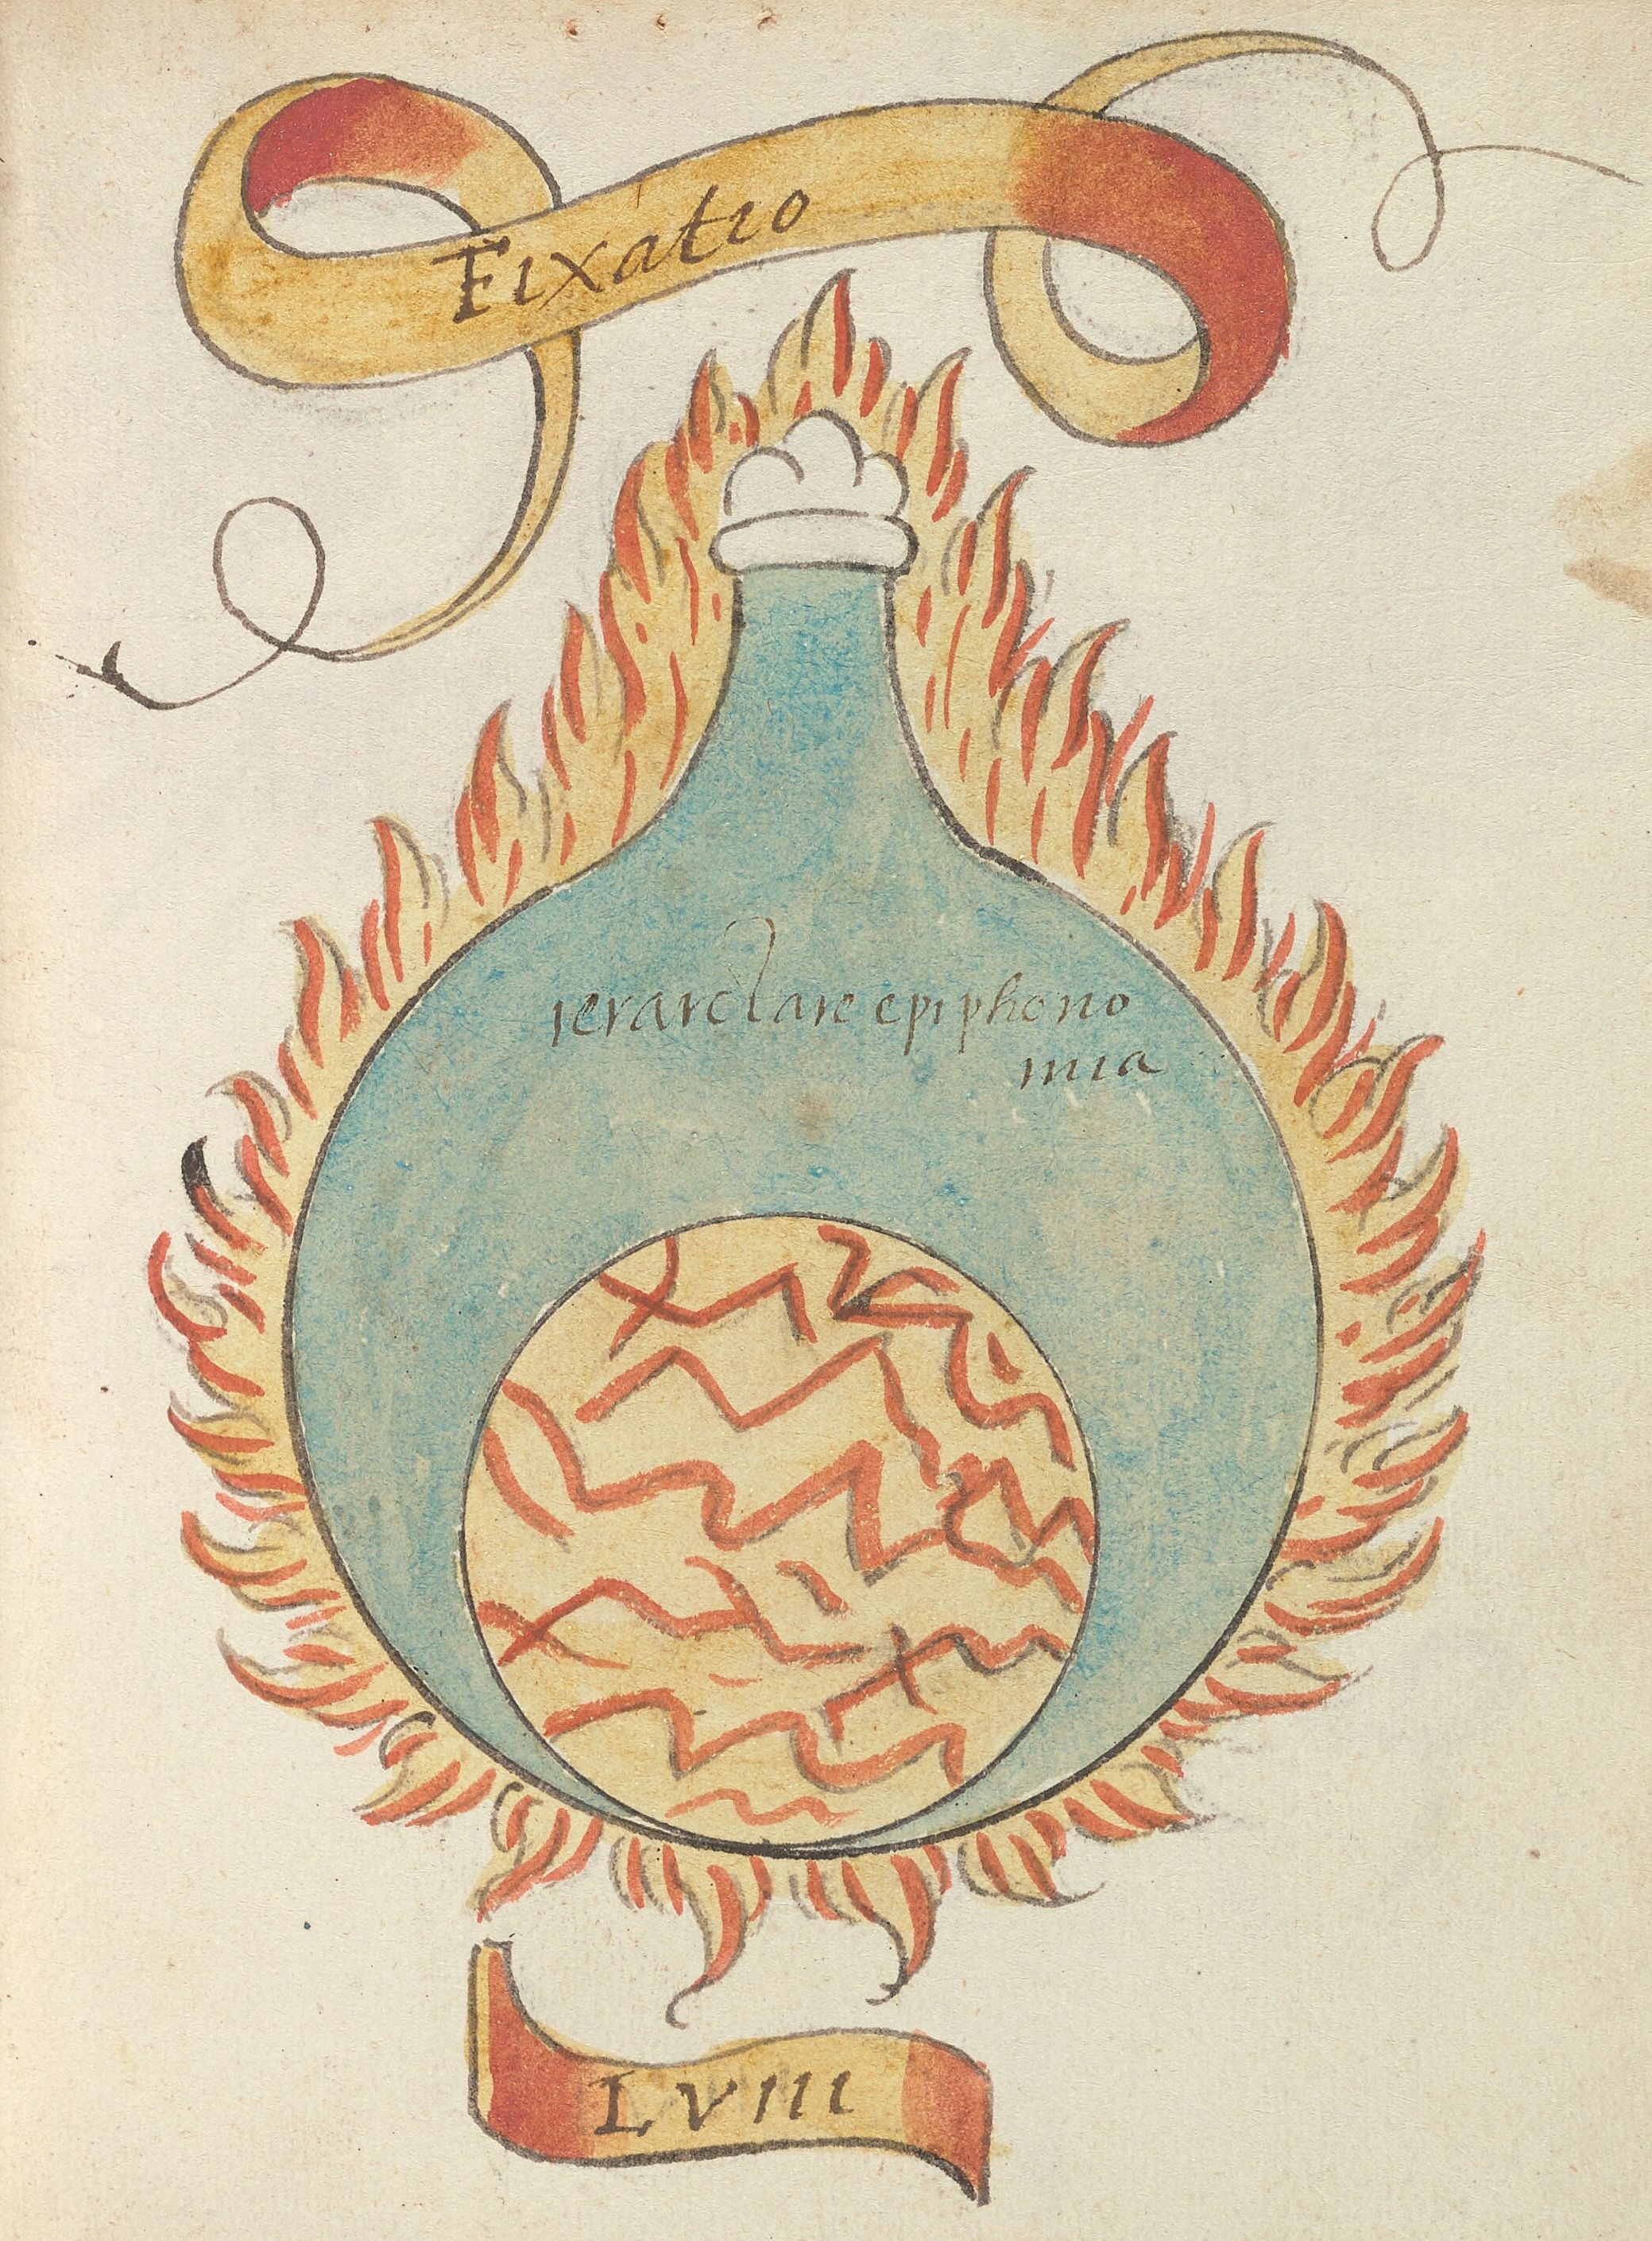 Fixatio
ierarclare epiphono
mia
LVIII